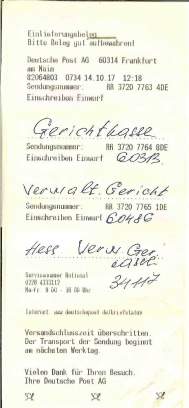 Einlieferungsbeleg
Bitte Beleg gut aufbewahren!
Deutsche Post AG 60314 Frankfurt
am Main
82064803 0734 14.10.17 12:18
Sendungsnummer: RR 3720 7763 4DE
Einschreiben Einwurf
Gerichtkasse
Sendungsnummer: RR 3720 7764 8DE
Einschreiben Einwurf 60313
Verwalt. Gericht
Sendungsnummer: RR 3720 7765 1DE
Einschreiben Einwurf 60486
Hess Verw Ger
Kassel
34117
Servicenummer National
0228 4333112
Mo-Fr 8:00 - 18:00 Uhr
Internet: www.deutschepost.de/briefstatus
Versandschlusszeit überschritten.
Der Transport der Sendung beginnt
am nächsten Werktag.
Vielen Dank für Ihren Besuch.
Ihre Deutsche Post AG